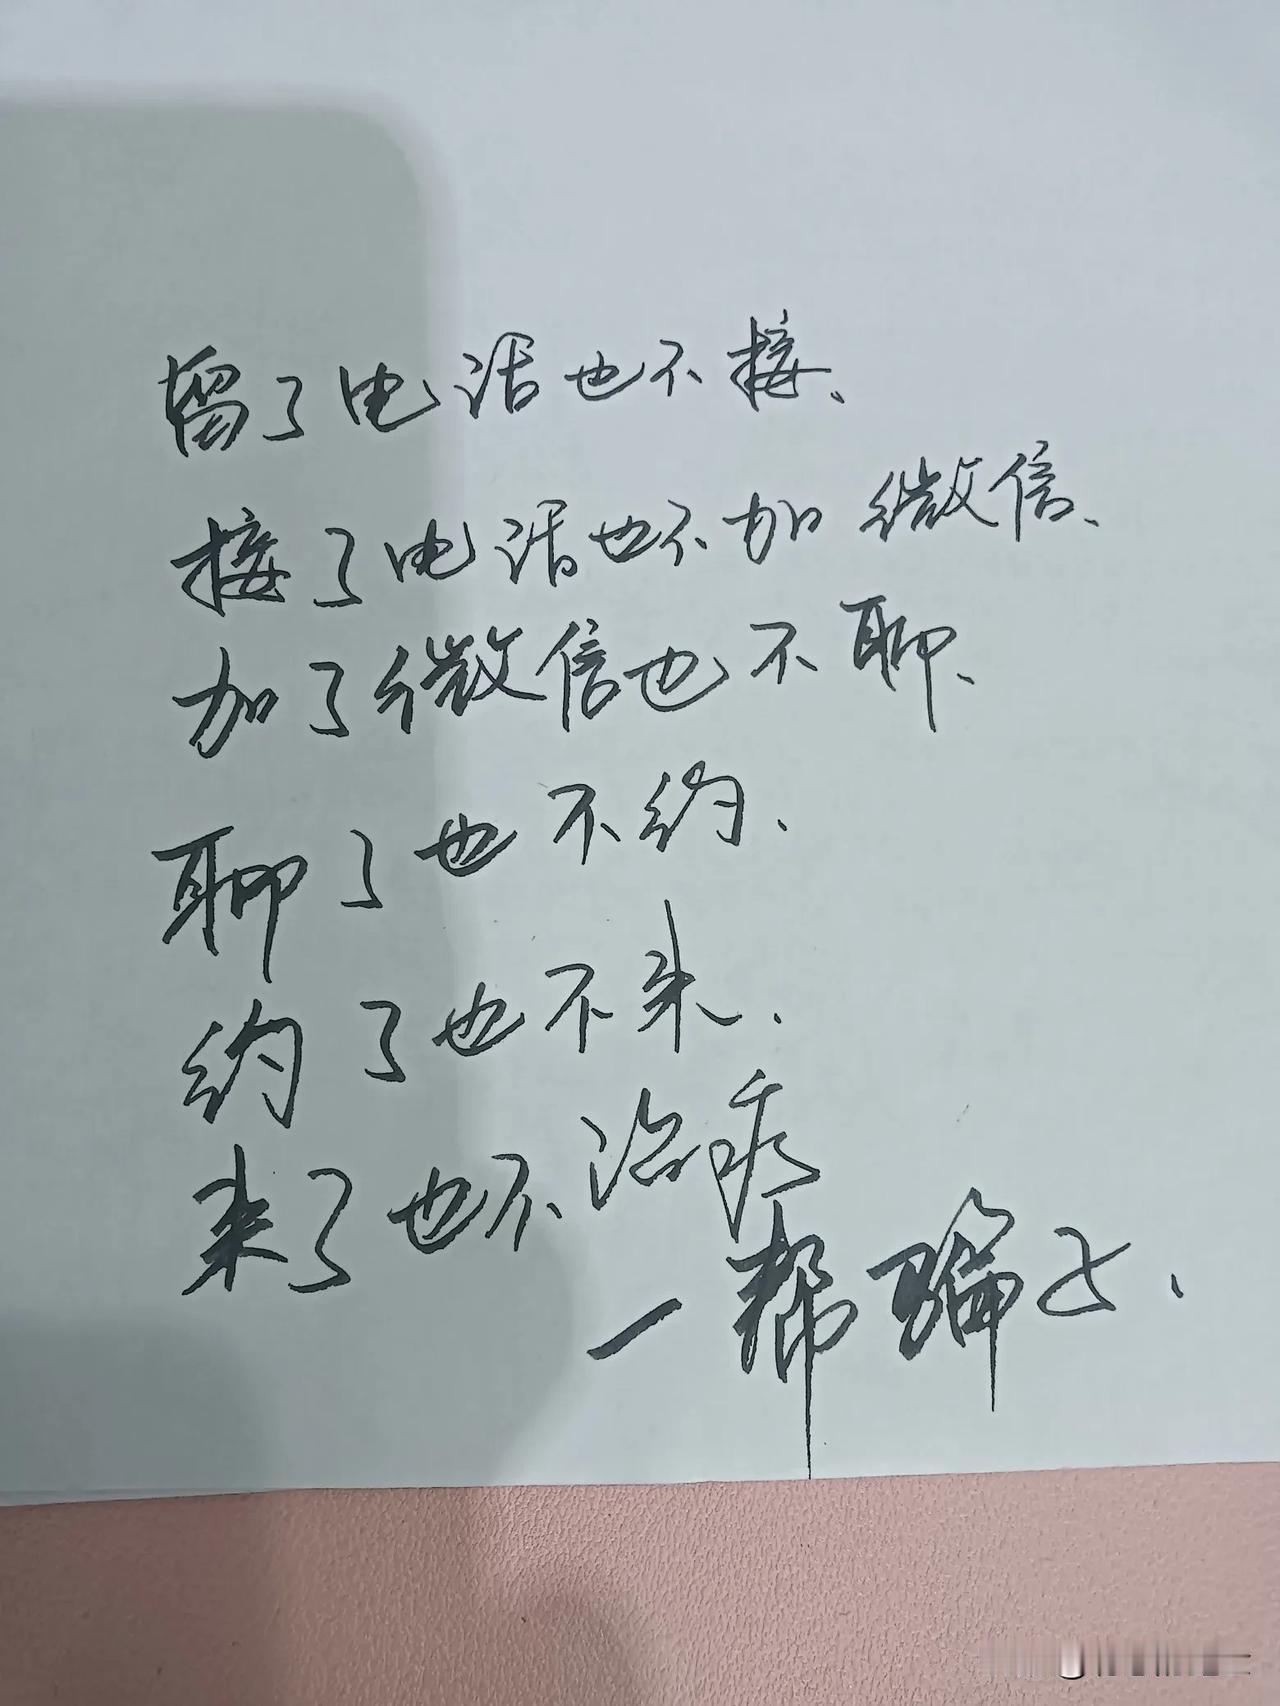 留了电话也不接、
接了电话也不加微信、
加了微信也不聊、
聊了也不约、
约了也不来、
来了也不治疗
一帮骗子、